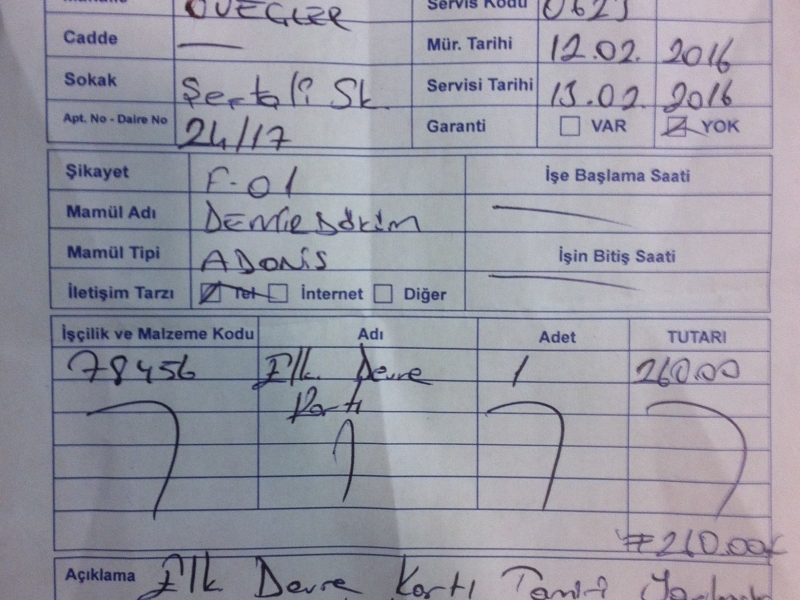 Mahalle ÖVEÇLER Servis Kodu 0623
Cadde — Mür. Tarihi 12.02. 2016
Sokak Şentali Sk. Servisi Tarihi 13.02. 2016
Apt. No - Daire No 24/17 Garanti VAR YOK
Şikayet F-01 İşe Başlama Saati
Mamül Adı DEMİRDÖKÜM
Mamül Tipi ADONİS İşin Bitiş Saati
İletişim Tarzı Tel İnternet Diğer
İşçilik ve Malzeme Kodu Adı Adet TUTARI
78456 Elk Devre 1 260.00
Kartı
#260.00₺
Açıklama Elk Devre Kartı Tamiri